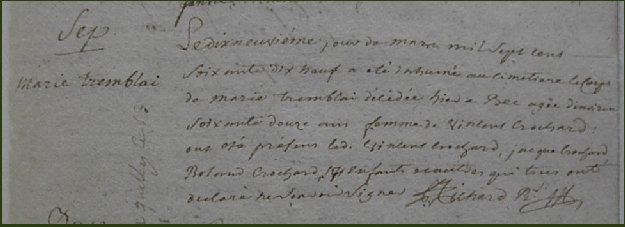 Sep
Marie tremblai
Le dixneusiéme jour de mars mil Sept Cens
Soixante dix neuf a eté inhumé au Cimetiere le corps
de marie tremblai décédée hier a agée d'environ
Soixante douze ans femme de Vinsent Crochard,
ont eté présens led. Vinsent Crochard, jacque Crochard
Roland Crochard enfants qui tous ont
declaré ne Sçavoir Signer Richard Rr